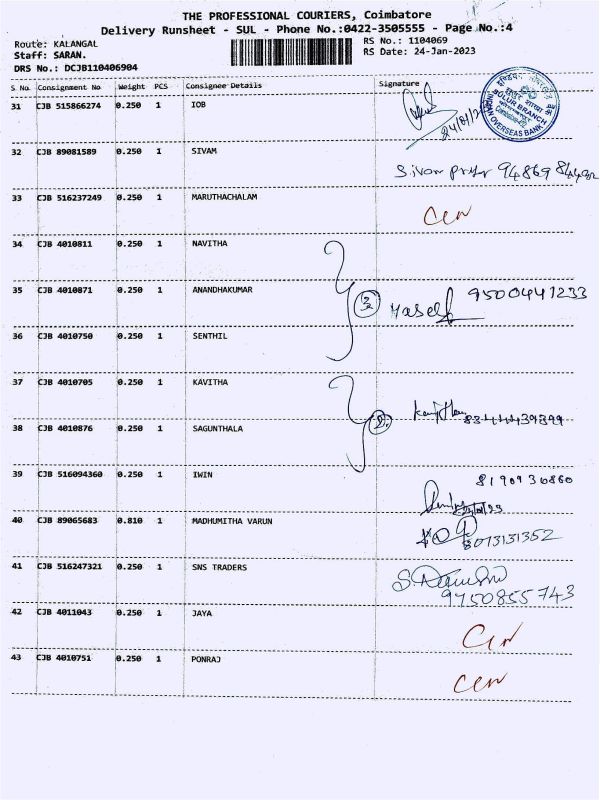 THE PROFESSIONAL COURIERS, Coimbatore
Delivery Runsheet - SUL - Phone No.:0422-3505555 - Page No.:4
Route: KALANGAL RS No.: 1104069
Staff: SARAN. RS Date: 24-Jan-2023
DRS No.: DCJB110406904
S. No Consignment No Weight PCS Consignee Details Signature
31 CJB 515866274 0.250 1 IOB
SULUR BRANCH
INDIAN OVERSEAS BANK
32 CJB 89081589 0.250 1 SIVAM
33 CJB 516237249 0.250 1 MARUTHACHALAM
34 CJB 4010811 0.250 1 NAVITHA
35 CJB 4010871 0.250 1 ANANDHAKUMAR 9500441233
36 CJB 4010750 0.250 1 SENTHIL
37 CJB 4010705 0.250 1 KAVITHA
38 CJB 4010876 0.250 1 SAGUNTHALA
39 CJB 516094360 0.250 1 IWIN
40 CJB 89065683 0.810 1 MADHUMITHA VARUN 8073131352
41 CJB 516247321 0.250 1 SNS TRADERS
9750855743
42 CJB 4011043 0.250 1 JAYA
43 CJB 4010751 0.250 1 PONRAJ